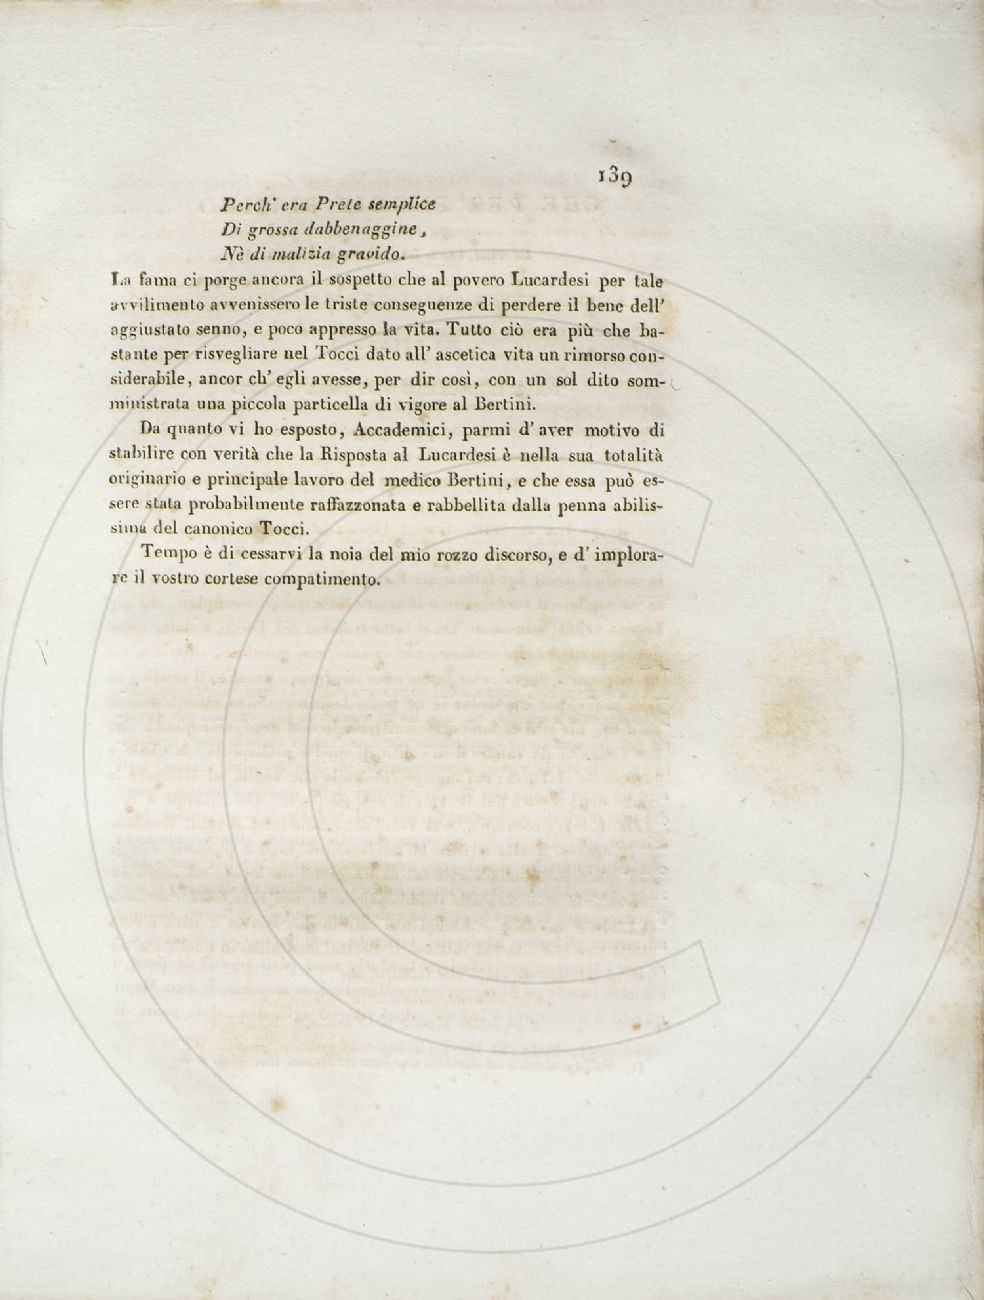 139
Perch' era Prete semplice
Di grossa dabbenaggine,
Nè di malizia gravido.
La fama ci porge ancora il sospetto che al povero Lucardesi per tale
avvilimento avvenissero le triste conseguenze di perdere il bene dell'
aggiustato senno, e poco appresso la vita. Tutto ciò era più che ba-
stante per risvegliare nel Tocci dato all' ascetica vita un rimorso con-
siderabile, ancor ch' egli avesse, per dir così, con un sol dito som-
ministrata una piccola particella di vigore al Bertini.
Da quanto vi ho esposto, Accademici, parmi d' aver motivo di
stabilire con verità che la Risposta al Lucardesi è nella sua totalità
originario e principale lavoro del medico Bertini, e che essa può es-
sere stata probabilmente raffazzonata e rabbellita dalla penna abilis-
sima del canonico Tocci.
Tempo è di cessarvi la noia del mio rozzo discorso, e d' implora-
re il vostro cortese compatimento.